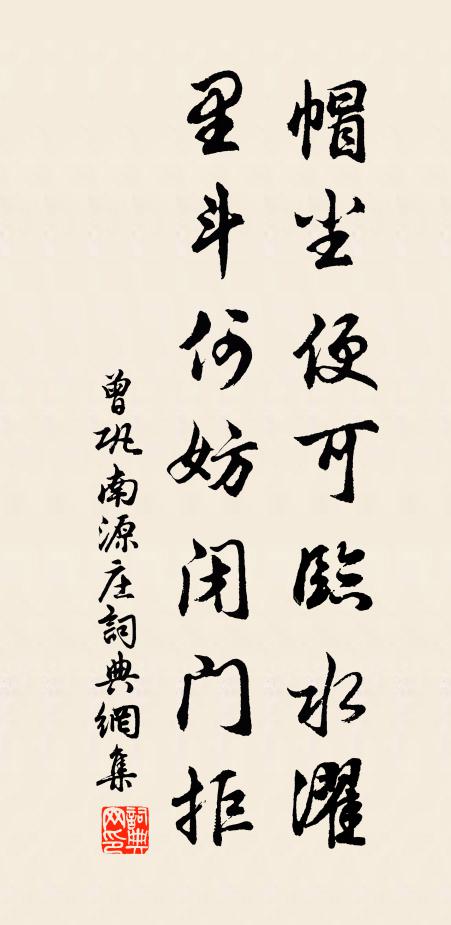 帽尘便可臨水濯
里斗何妨闭门拒
曾巩南源庄詞典網集
詞典网印